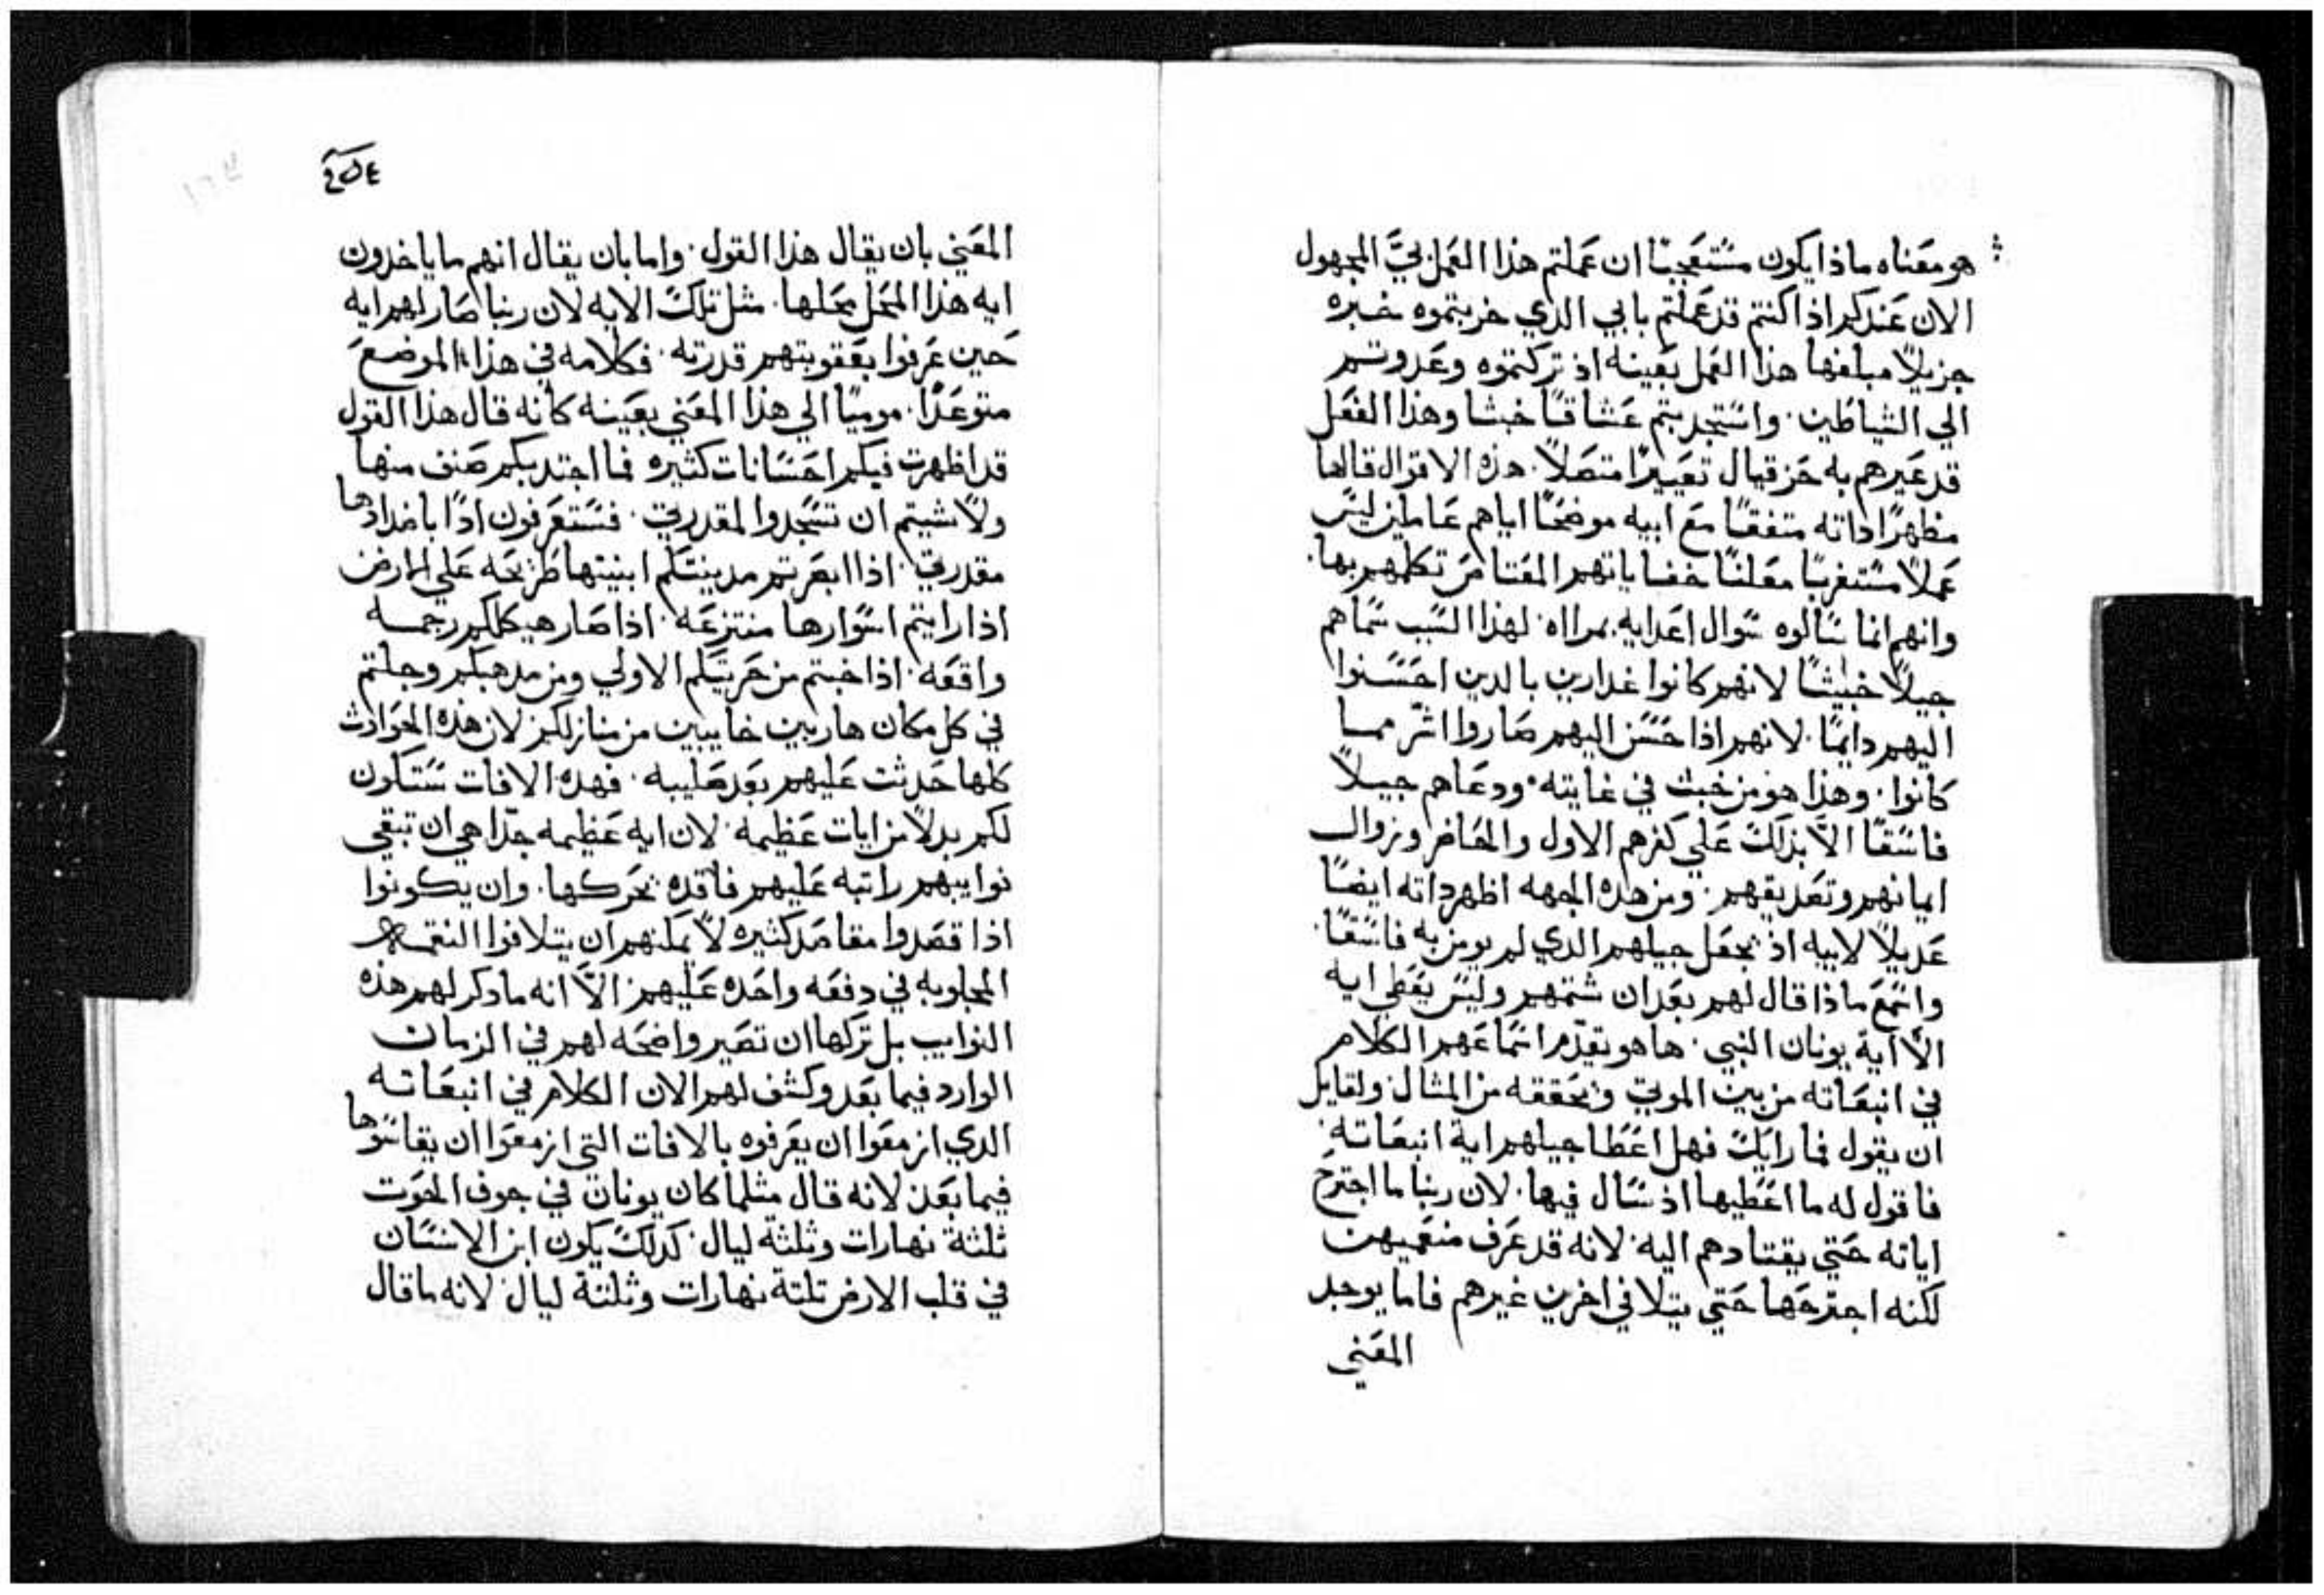 هو معناه ماذا يكون مستعجبًا ان عملتم هذا العمل بيَّ المجهول
الان عندكم اذا كنتم قد عملتم بابي الذي خربتموه خبره
جزيلاً مبلغها هذا العمل بعينه اذ تركتموه وعدوتم
الي الشياطين. واستجديتم عشاقًا خبثا وهذا الفعل
قد عيرهم به حزقيال تعييرًا متصلاً. هذه الاقوال قالها
مظهرًا داته متفقًا مع ابيه موضحًا اياهم عاملين ليس
عملاً مستغربًا معلنًا خفاياتهم المعتامر تكلمهم بها.
وانهم انما سالوه سوال اعدايه بمرااه. لهذا السبب سماهم
جيلاً خبيثًا لانهم كانوا غدارين بالدين احسنوا
اليهم دايمًا. لانهم اذا حسن اليهم صاروا اشر مما
كانوا. وهذا هو من خبث في غايته. ودعاهم جيلاً
فاسقًا الا بذلك علي كفرهم الاول والحاضر وزوال
ايمانهم وتصديقهم. ومن هده الجهه اظهر داته ايضًا
عديلاً لابيه اذ تجعل جيلهم الدي لم يومن به فاسقًا.
واسمع ماذا قال لهم بعد ان شتمهم وليس يعطي ايه
الاَّ اية يونان النبي. ها هو يقدم اسماعهم الكلام
في انبعاته من بين الموتي وتحققه من المثال ولقايل
ان يقول فما رايك فهل اعطا جيلهم اية انبعاته.
فاقول له ما اعطيها اذ سال فيها. لان ربنا ما اجترح
اياته حتي يقتادهم اليه. لانه قد عرف منعميهن
لكنه اجترحها حتي يتلافي اخرين غيرهم فاما يوجد
المعني
٢٥٤
المعني بان يقال هذا القول. واما بان يقال انهم ما ياخدون
ايه هذا المحل محلها. مثل تلك الايه لان ربنا صار لهم ايه
حين عرفوا بعقوبتهم قدرته. فكلامه في هذا الموضع
متوعدًا. موميًا الي هذا المعني بعينه كانه قال هذا القول
قد اظهرت فيكم احسانات كثيره فما اجتدبكم صنف منها
ولا شيتم ان تسجدوا لمقدرتي. فستعرفون ادًا باضدادها
مقدرتي. اذا ابصرتم مدينتكم ابنيتها طريحه علي الارض
اذا رايتم اسوارها منتزعه. اذا صار هيكلكم رجمه
واقعه. اذا خبتم من حريتكم الاولي ومن مدهبكم وجلتم
في كل مكان هاربين خايبين من منازلكم لان هذه الحوادث
كلها حدثت عليهم بعد صليبه. فهده الافات ستكون
لكم بدلاً من ايات عظيمه. لان ايه عظيمه جدًا هي ان تبقي
نوايبهم راتبه عليهم فاقده تحركها. وان يكونوا
اذا قصدوا مقاصد كثيره لا يمكنهم ان يتلافوا النقمه
المجلوبه في دفعه واحده عليهم الاَّ انه ما دكر لهم هذه
النوايب بل تركها ان تصير واضحه لهم في الزمان
الوارد فيما بعد وكشف لهم الان الكلام في انبعاته
الدي ازمعوا ان يعرفوه بالافات التي ازمعوا ان يقاسوها
فيما بعد لانه قال مثلما كان يونان في جوف الحوت
ثلثة نهارات وثلثة ليال. كدلك يكون ابن الانسان
في قلب الارض تلتة نهارات وثلثة ليال. لانه ما قال